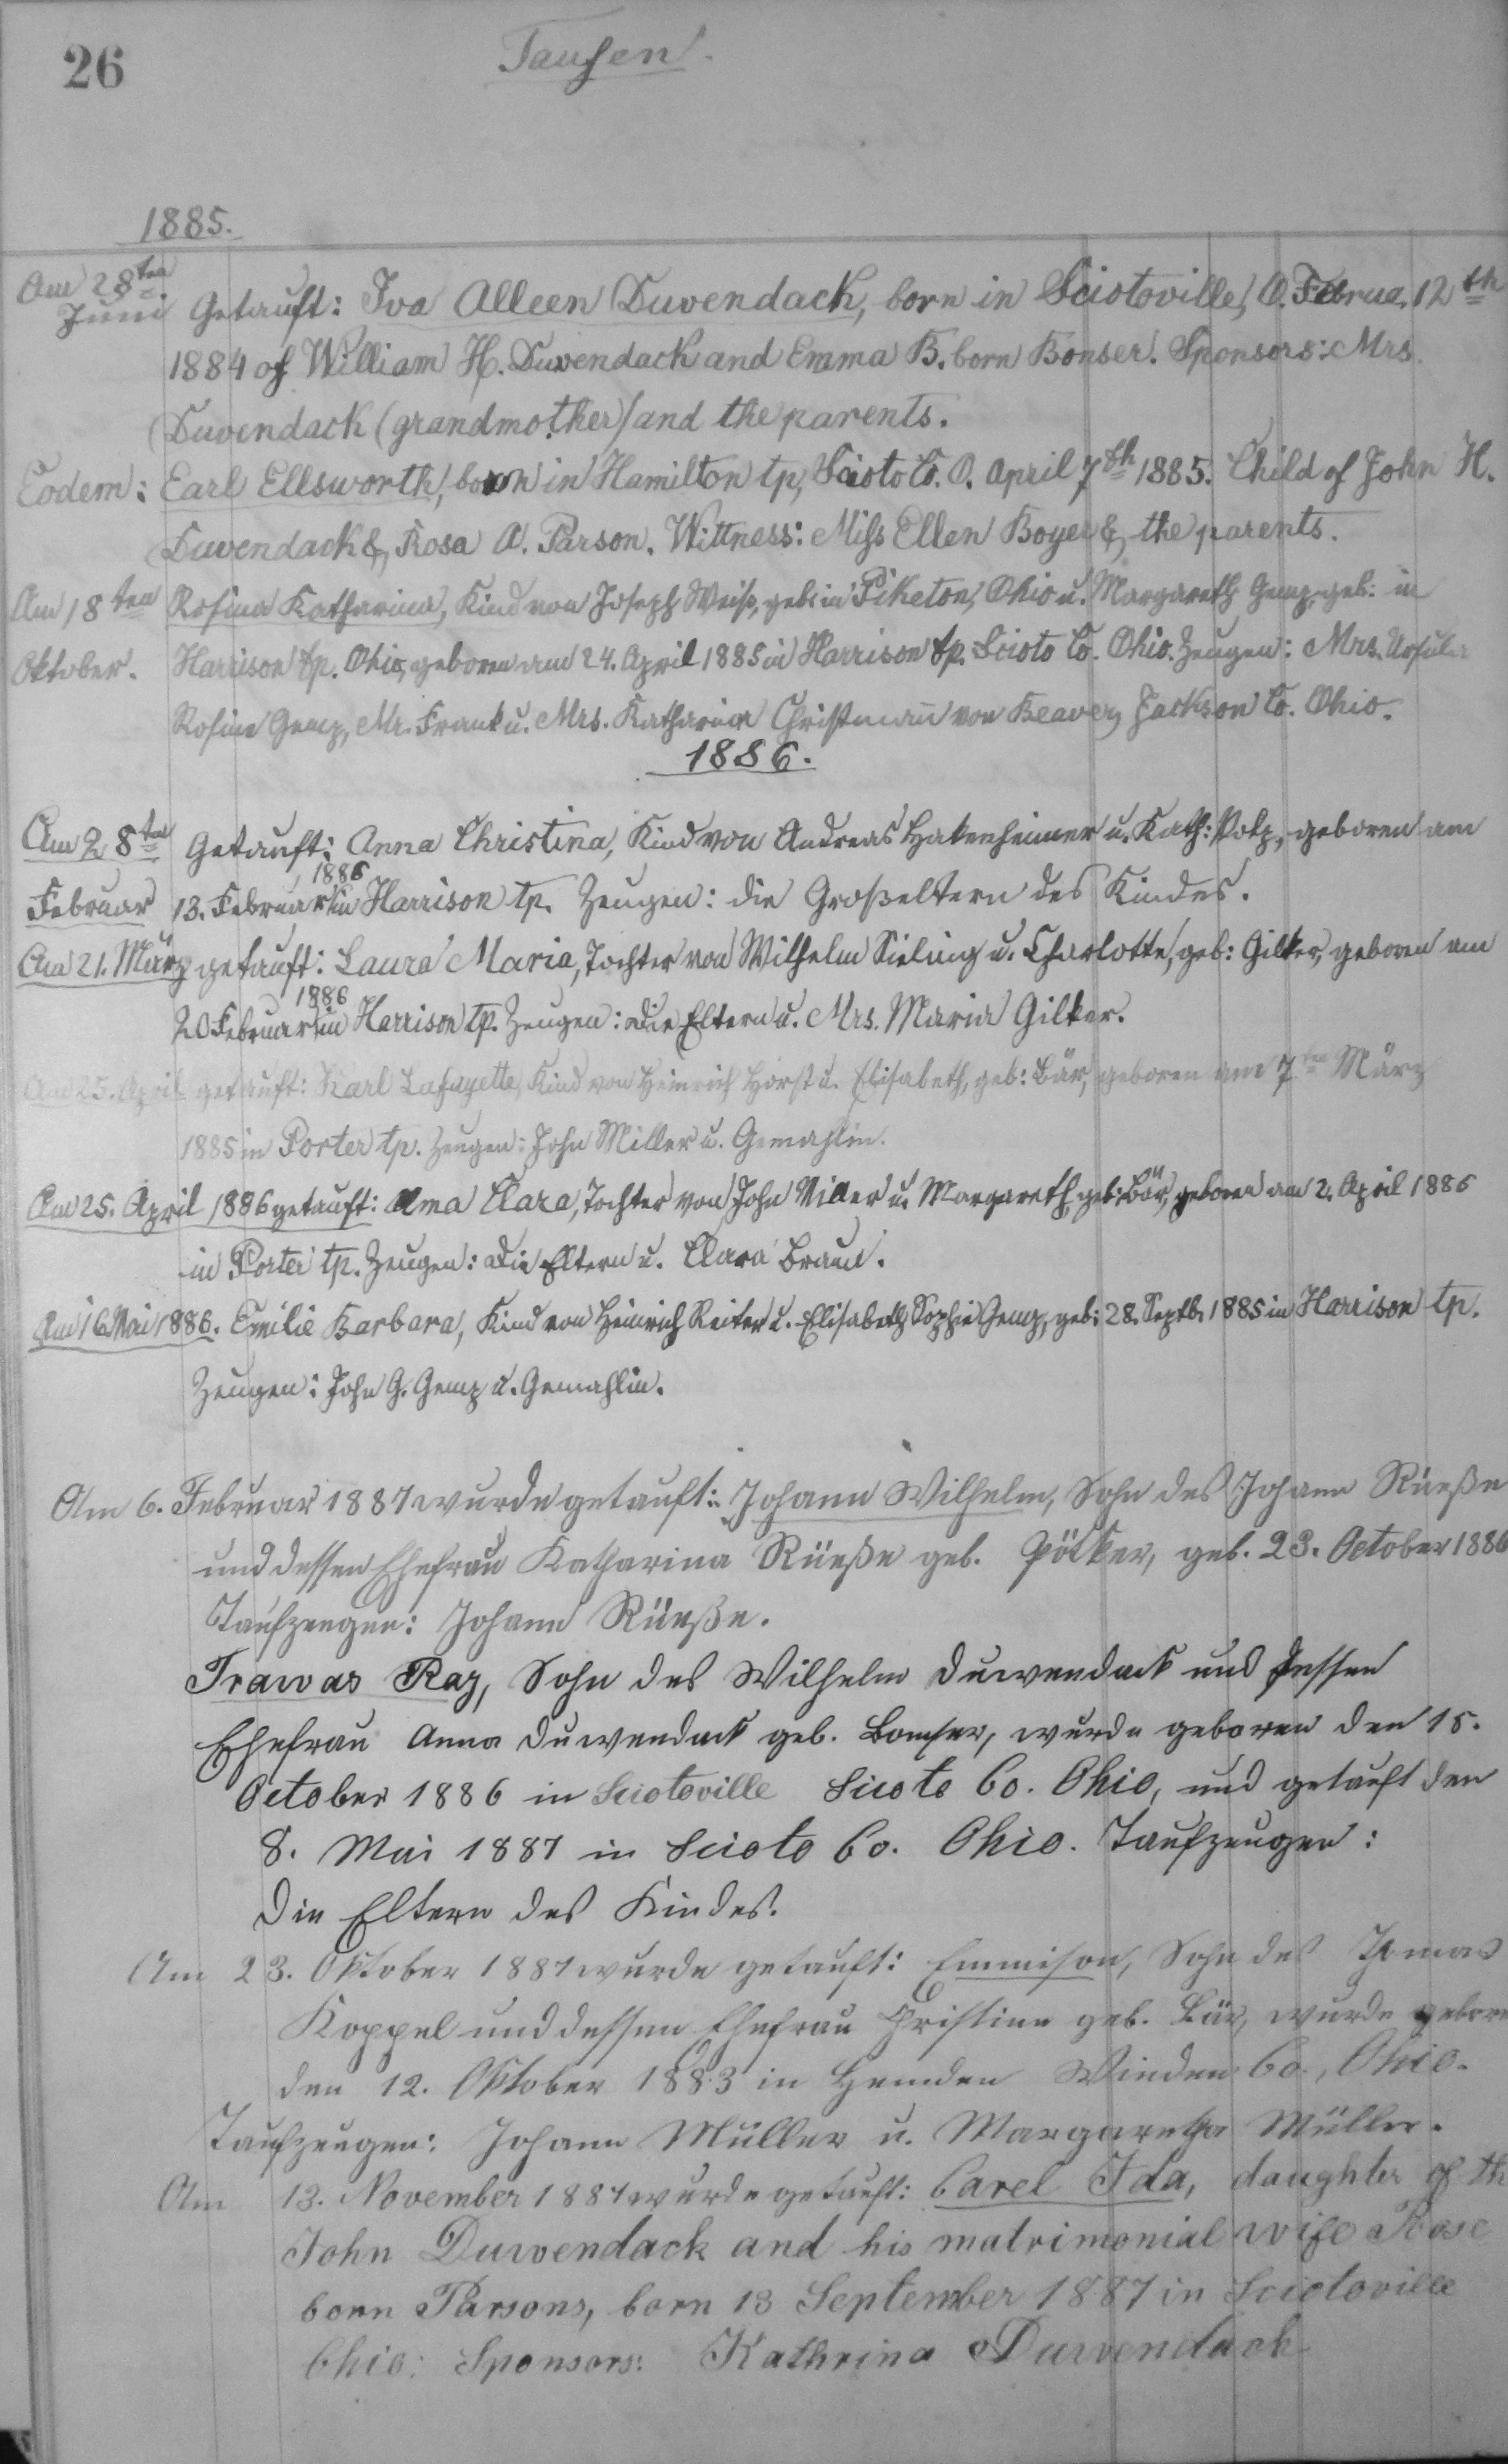 26
Taufen.
1885.
Am 28ten Juni Getauft: Iva Alleen Duvendack, born in Sciotoville, O. Februa. 12th
1884 of William H. Duvendack and Emma B. born Bonser. Sponsors: Mrs.
Duvendack (grandmother) and the parents.
Eodem: Earl Ellsworth, born in Hamilton tp, Scioto Co. O. April 7th 1885. Child of John H.
Duvendack & Rosa A. Parson. Wittness: Miss Ellen Boyer & the parents.
Am 18ten Rosina Katharina, Kind von Joseph Weiß, geb: in Piketon, Ohio u. Margareth Gemp, geb: in
Oktober. Harrison tp. Ohio, geboren am 24. April 1885 in Harrison tp. Scioto Co. Ohio. Zeugen: Mrs. Ursula
Rosina Gemp, Mr. Frank u. Mrs. Katharina Christmann von Beaver, Jackson Co. Ohio.
1886.
Am 28ten Getauft: Anna Christina, Kind von Andreas Hakenheimer u. Kath: Volz, geboren am
Februar 13. Februar 1886 in Harrison tp. Zeugen: die Großeltern des Kindes.
Am 21. März getauft: Laura Maria, Tochter von Wilhelm Sieling u. Charlotte, geb: Gilker, geboren am
20 Februar 1886 in Harrison tp. Zeugen: die Eltern u. Mrs. Maria Gilker.
Am 25. April getauft: Karl Lafayette, Kind von Heinrich Horst u. Elisabeth, geb: Bär, geboren am 7ten März
1885 in Porter tp. Zeugen: John Miller u. Gemahlin.
Am 25. April 1886 getauft: Alma Clara, Tochter von John Miller u. Margareth, geb: Bär, geboren am 2. April 1886
in Porter tp. Zeugen: die Eltern u. Clara Braun.
Am 16 Mai 1886. Emilie Barbara, Kind von Heinrich Reiter u. Elisabeth Sophie Gemp, geb: 28. Septb. 1885 in Harrison tp.
Zeugen: John G. Gemp u. Gemahlin.
Am 6. Februar 1887 wurde getauft: Johann Wilhelm, Sohn des Johann Rüeße
und dessen Ehefrau Katharina Rüeße geb. Pötker, geb. 23. October 1886
Taufzeugen: Johann Rüeße.
Trawas Ray, Sohn des Wilhelm Duwendack und dessen
Ehefrau Anna Duwendack geb. Bomser, wurde geboren den 15.
October 1886 in Sciotoville Sicoto Co. Ohio, und getauft den
8. Mai 1887 in Scioto Co. Ohio. Taufzeugen:
Die Eltern des Kindes.
Am 23. Oktober 1887 wurde getauft: Emmison, Sohn des Thomas
Koppel und dessen Ehefrau Christine geb. Bär, wurde gebore
den 12. Oktober 1883 in Hemden Winden Co., Ohio.
Taufzeugen: Johann Müller u. Margaretha Müller.
Am 13. November 1887 wurde getauft: Carel Ida, daughter of th
John Duwendack and his matrimonial wife Rose
born Parsons, born 13 September 1887 in Sciotoville
Ohio: Sponsors: Kathrina Duwendack